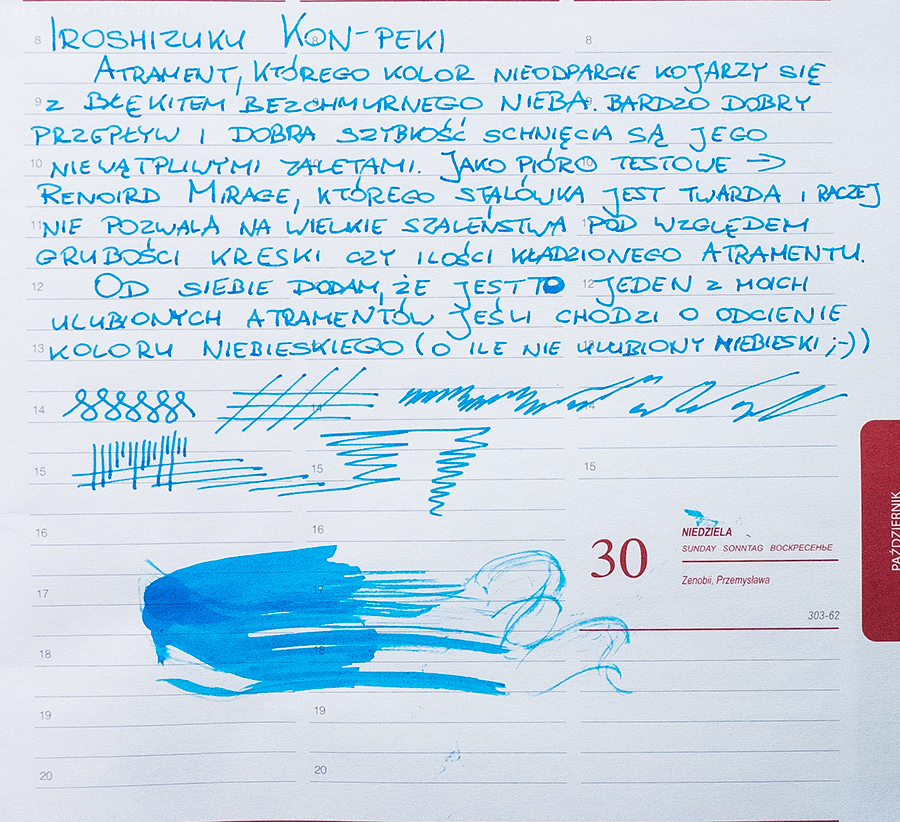 IROSHIZUKU KON-PEKI
ATRAMENT, KTÓREGO KOLOR NIEODPARCIE KOJARZY SIĘ
Z BŁĘKITEM BEZCHMURNEGO NIEBA. BARDZO DOBRY
PRZEPŁYW I DOBRA SZYBKOŚĆ SCHNIĘCIA SĄ JEGO
NIEWĄTPLIWYMI ZALETAMI. JAKO PIÓRO TESTOWE →
RENOIRD MIRAGE, KTÓREGO STALÓWKA JEST TWARDA I RACZEJ
NIE POZWALA NA WIELKIE SZALEŃSTWA POD WZGLĘDEM
GRUBOŚCI KRESKI CZY ILOŚCI KŁADZIONEGO ATRAMENTU.
OD SIEBIE DODAM, ŻE JEST TO JEDEN Z MOICH
ULUBIONYCH ATRAMENTÓW JEŚLI CHODZI O ODCIENIE
KOLORU NIEBIESKIEGO (O ILE NIE ULUBIONY NIEBIESKI ;-))
8 8 8
9 9
10 10 10
11 11
12 12
13
14 14 14
15 15 15
16 16
17
18 18
19 19
20 20
30
NIEDZIELA
SUNDAY SONNTAG ВОСКРЕСЕНЬЕ
Zenobii, Przemysława
303-62
PAŹDZIERNIK